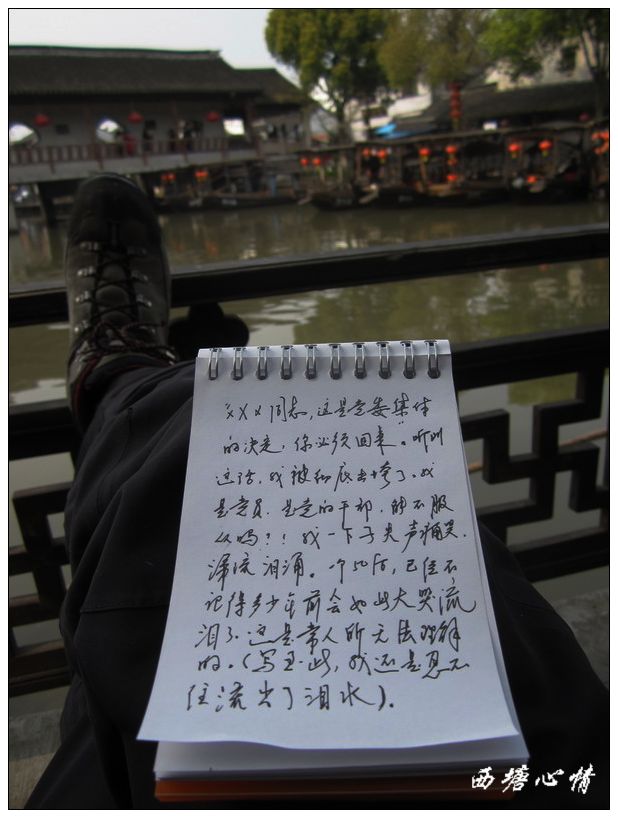 “XXX同志，这是党委集体
的决定，你必须回来”。听到
这话，我被彻底击垮了。我
是党员，是党的干部，能不服
从吗？！我一下子失声痛哭，
涕流泪涌。一个50后，已经不
记得多少年前会如此大哭流
泪了。这是常人所无法理解
的。（写至此，我还是忍不
住流出了泪水）。
西塘心情